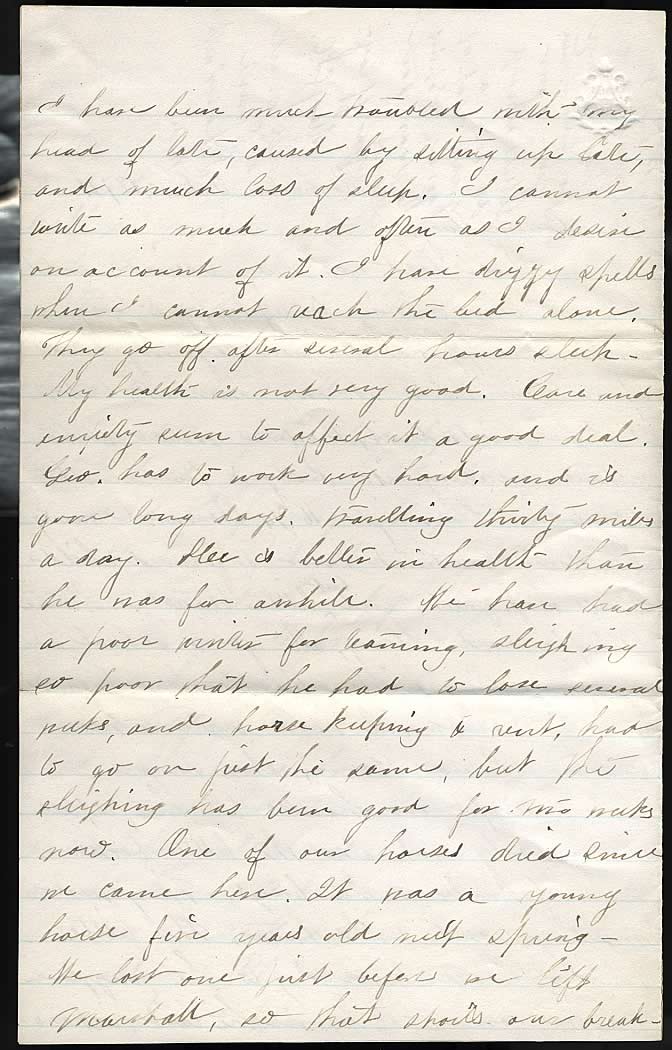 I have been much troubled with my
head of late, caused by sitting up late,
and much loss of sleep. I cannot
write as much and often as I desire
on account of it. I have dizzy spells
when I cannot reach the bed alone.
They go off after several hours sleep -
My health is not very good. Care and
anxiety seem to affect it a good deal.
Geo. has to work very hard, and is
gone long days, travelling thirty miles
a day. He is better in health than
he was for awhile. We have had
a poor winter for teaming, sleighing
so poor that he had to lose several
weeks, and horse keeping & rent, had
to go on just the same, but the
sleighing has been good for two weeks
now. One of our horses died since
we came here. It was a young
horse five years old next spring -
We lost one just before we left
Marshall, so that spoils our break-